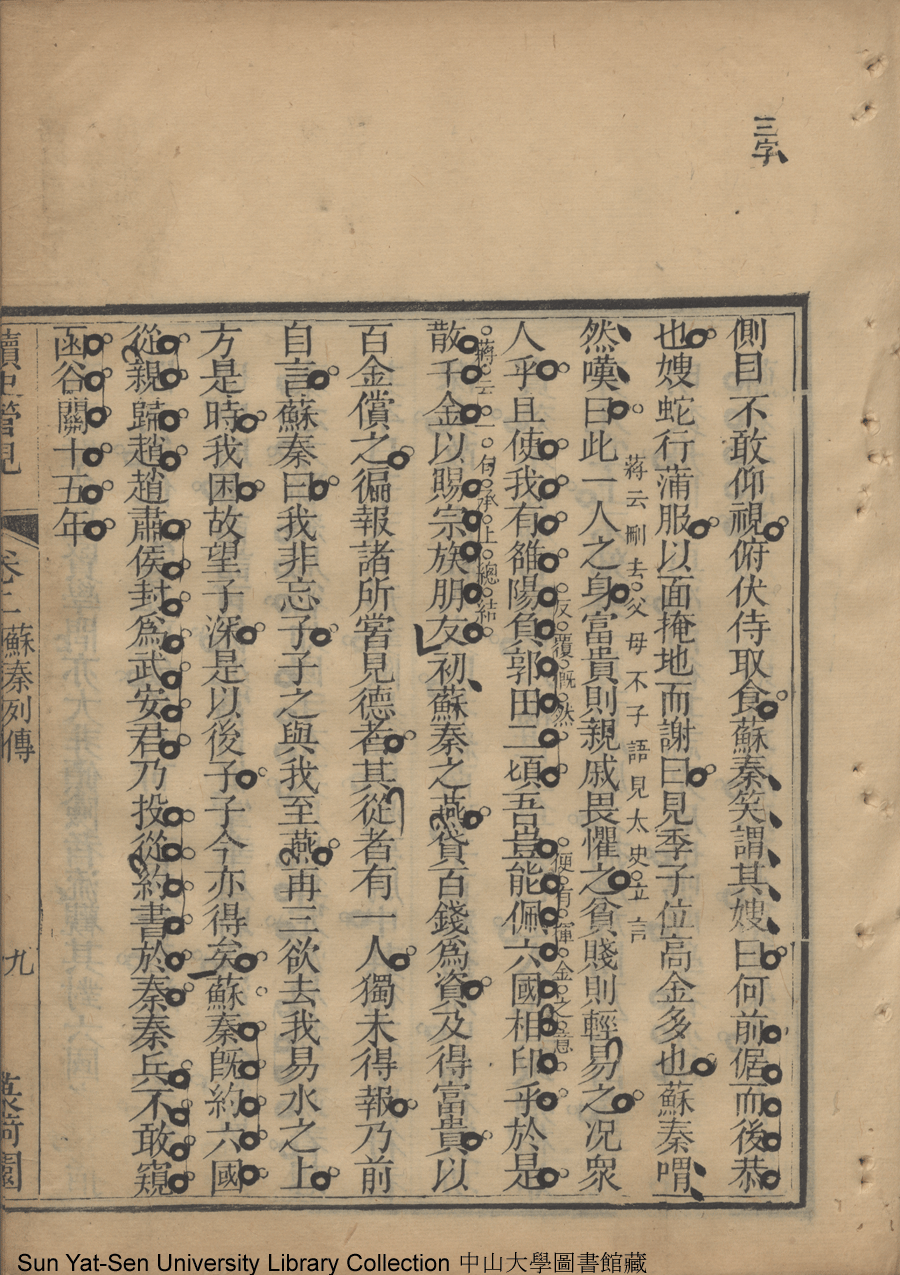 三字
側目不敢仰視俯伏侍取食蘇秦笑謂其嫂曰何前倨而後恭
也嫂蛇行蒲服以面掩地而謝曰見季子位高金多也蘇秦喟
蔣云刪去父母不子語見太史立言
然嘆曰此一人之身富貴則親戚畏懼之貧賤則輕易之况衆
反覆慨然
便有揮金之意
人乎且使我有雒陽負郭田二頃吾豈能佩六國相印乎於是
蔣云一句承上總結
散千金以賜宗族朋友初蘇秦之燕貸百錢爲資及得富貴以
百金償之徧報諸所嘗見德者其從者有一人獨未得報乃前
自言蘇秦曰我非忘子子之與我至燕再三欲去我易水之上
方是時我困故望子深是以後子子今亦得矣蘇秦旣約六國
從親歸趙趙肅侯封爲武安君乃投從約書於秦秦兵不敢窺
函谷關十五年
讀史管見
卷二
蘇秦列傳
九
Sun Yat-Sen University Library Collection 中山大學圖書館藏